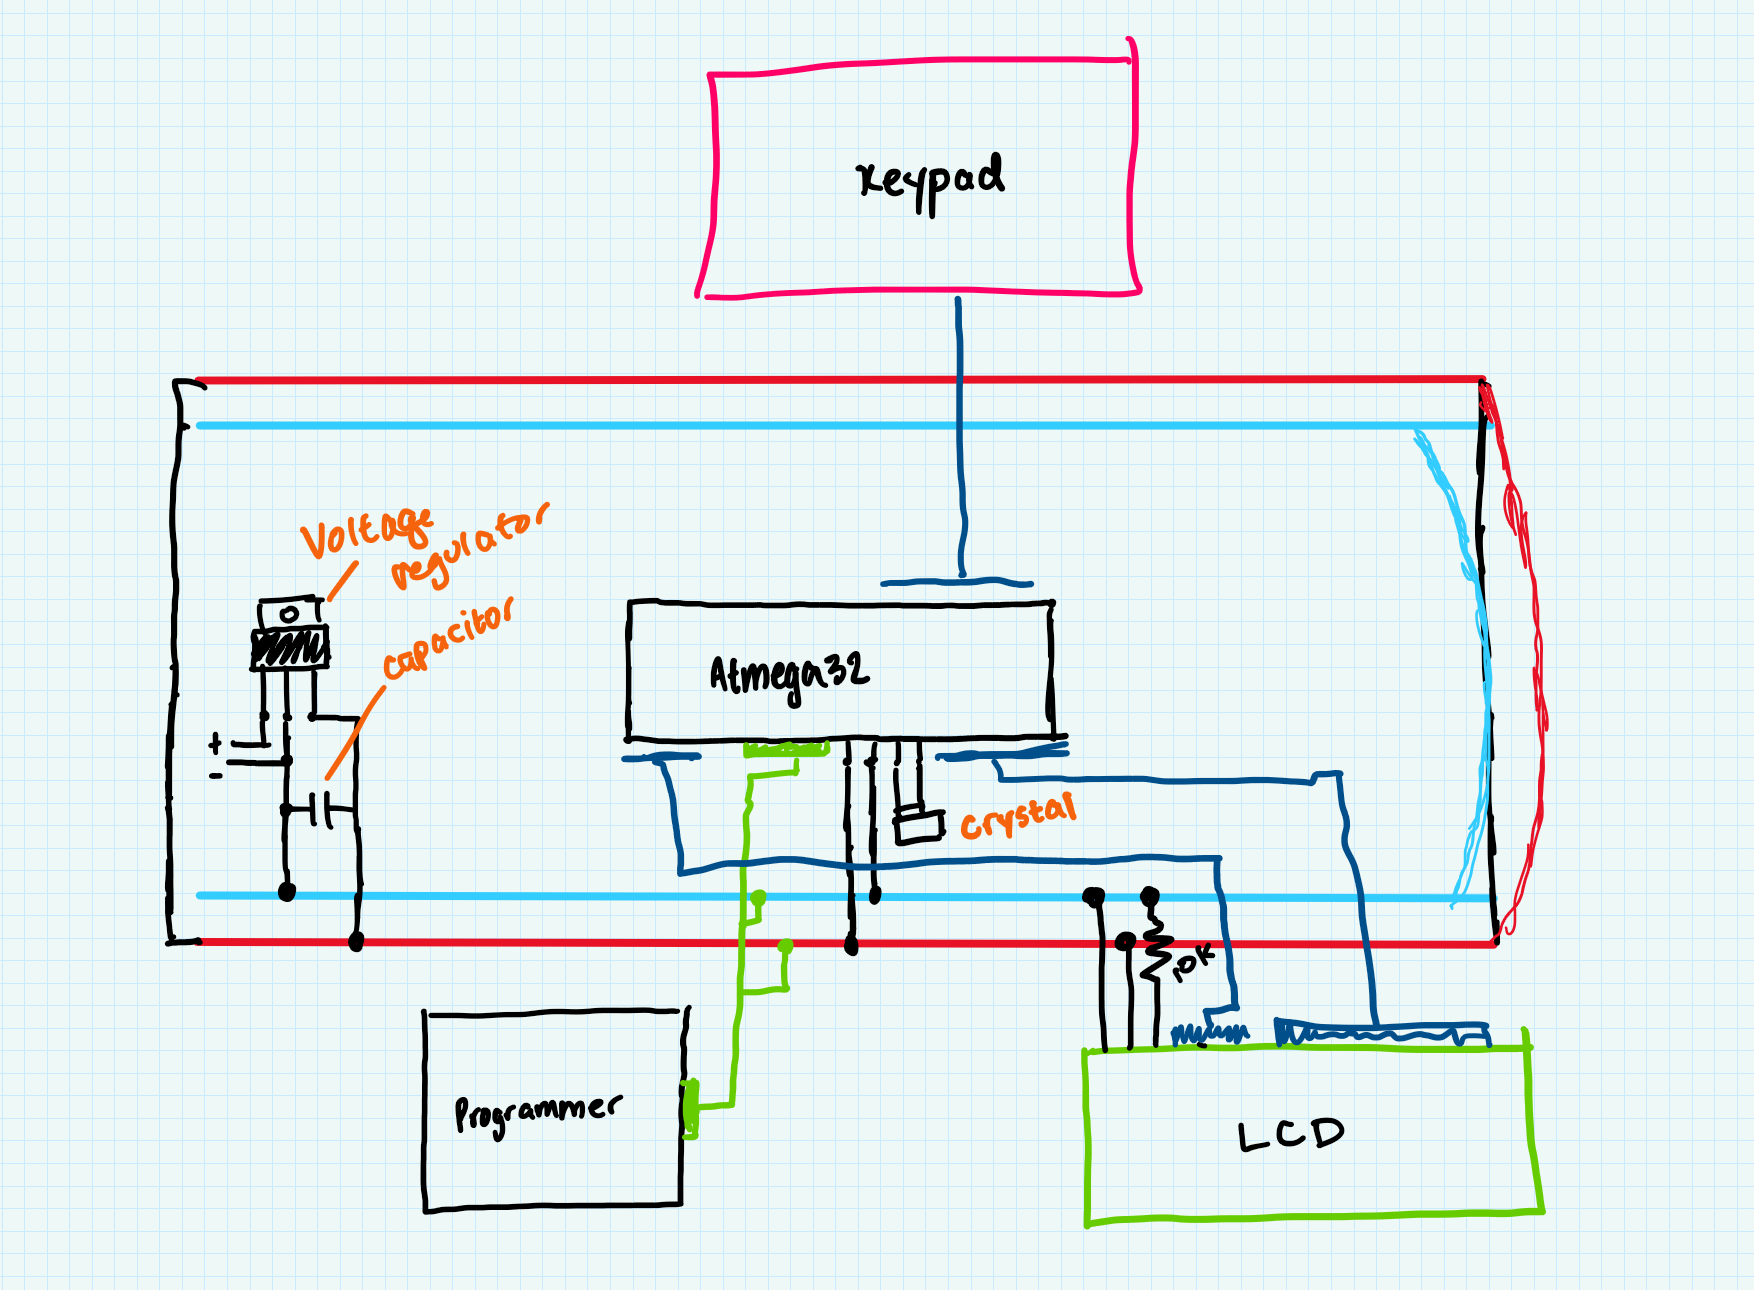 Keypad
Voltage
regulator
capacitor
Atmega32
+
-
crystal
10K
Programmer
LCD